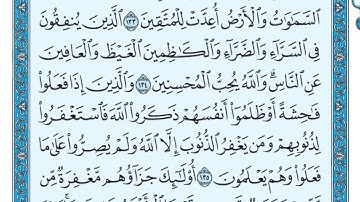 السَّمَٰوَٰتُ وَالْأَرْضُ أُعِدَّتْ لِلْمُتَّقِينَ ۝١٣٣ الَّذِينَ يُنفِقُونَ
فِي السَّرَّاءِ وَالضَّرَّاءِ وَالْكَاظِمِينَ الْغَيْظَ وَالْعَافِينَ
عَنِ النَّاسِ ۗ وَاللَّهُ يُحِبُّ الْمُحْسِنِينَ ۝١٣٤ وَالَّذِينَ إِذَا فَعَلُوا
فَاحِشَةً أَوْ ظَلَمُوا أَنفُسَهُمْ ذَكَرُوا اللَّهَ فَاسْتَغْفَرُوا
لِذُنُوبِهِمْ وَمَن يَغْفِرُ الذُّنُوبَ إِلَّا اللَّهُ وَلَمْ يُصِرُّوا عَلَىٰ مَا
فَعَلُوا وَهُمْ يَعْلَمُونَ ۝١٣٥ أُولَٰئِكَ جَزَاؤُهُم مَّغْفِرَةٌ مِّن